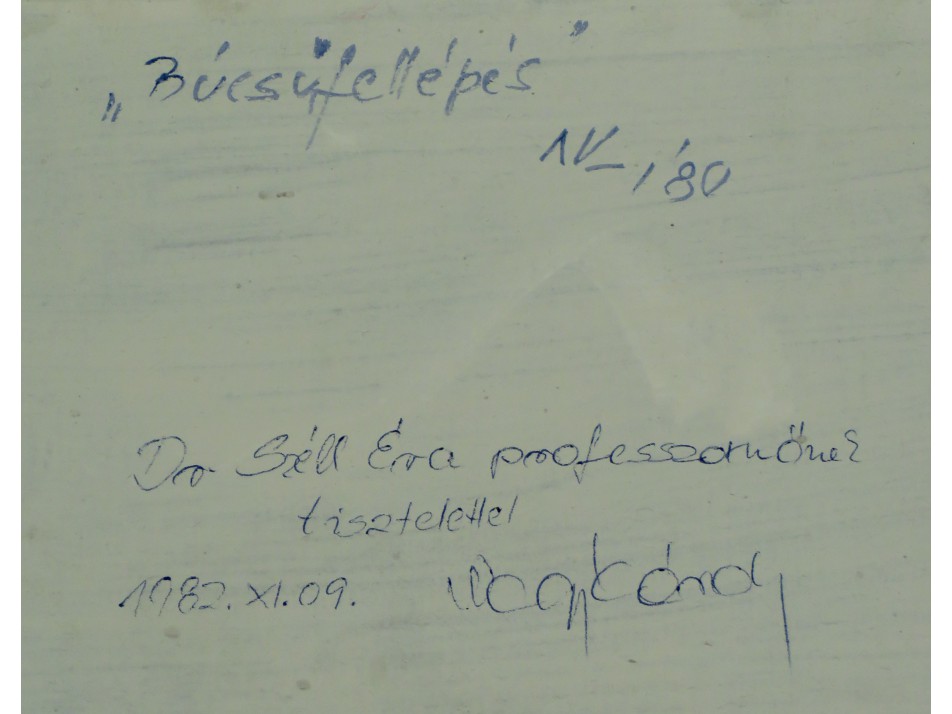 „Búcsúfellépés”
IV_, '80
Dr Széll Éva professzornőnek
tisztelettel
1982. XI. 09.